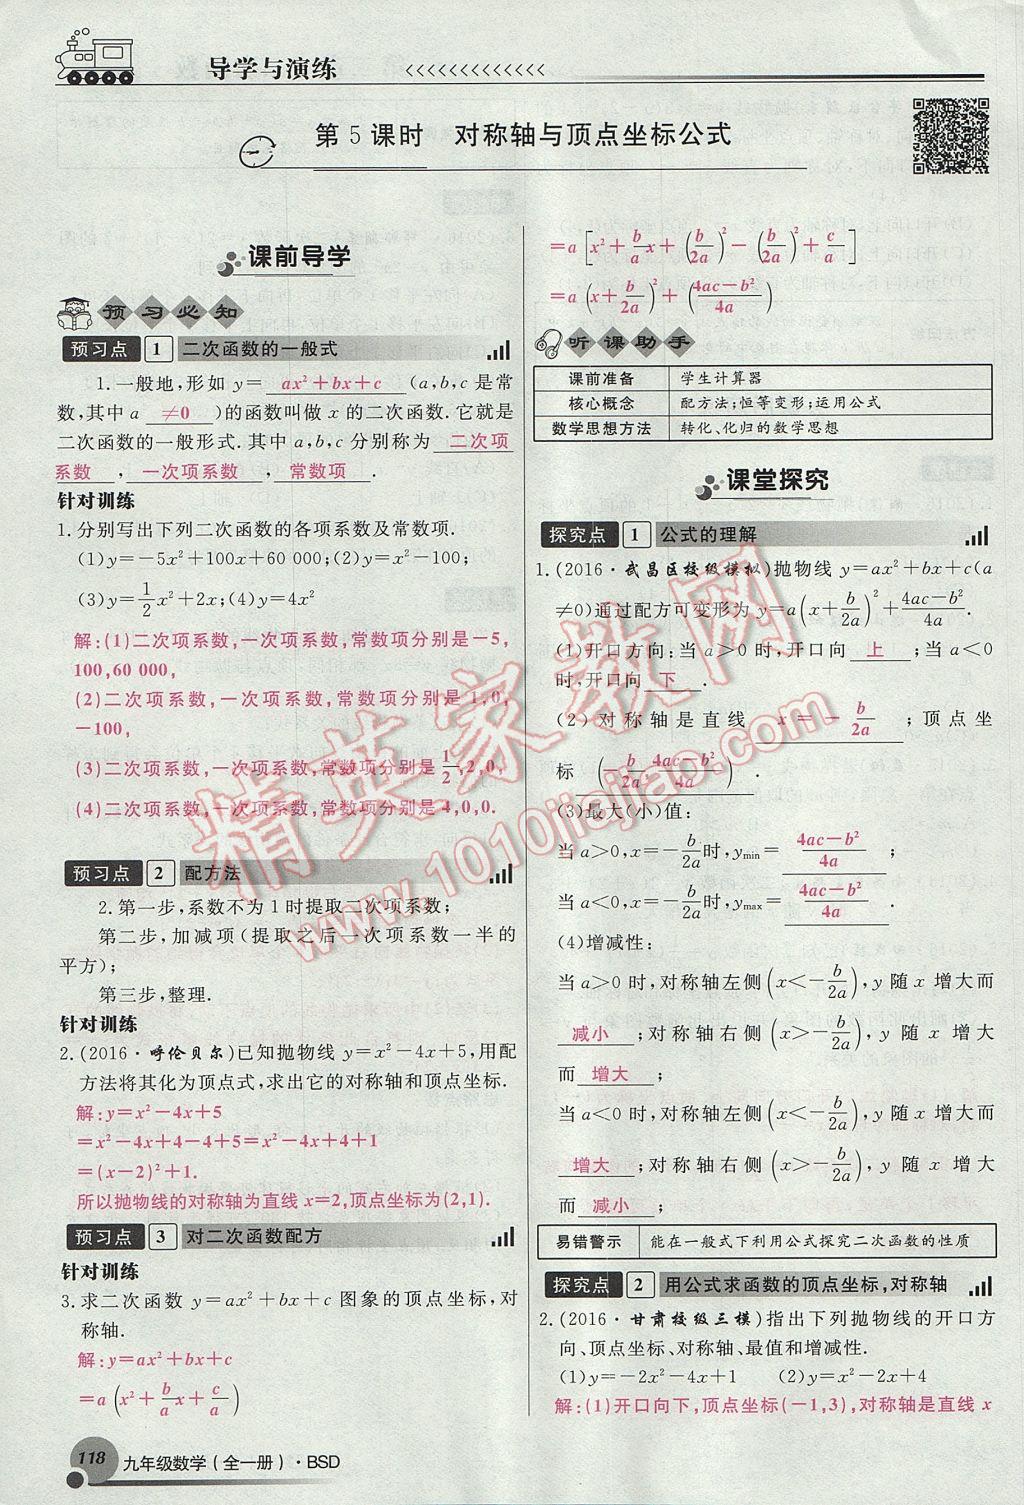 导学与演练
第5课时 对称轴与顶点坐标公式
课前导学
预习必知
预习点 1 二次函数的一般式
1.一般地,形如 y= ax²+bx+c (a,b,c 是常
数,其中 a ≠0 )的函数叫做 x 的二次函数.它就是
二次函数的一般形式.其中 a,b,c 分别称为 二次项
系数 , 一次项系数 , 常数项 .
针对训练
1.分别写出下列二次函数的各项系数及常数项.
(1)y=-5x²+100x+60 000;(2)y=x²-100;
(3)y=1/2x²+2x;(4)y=4x²
解:(1)二次项系数,一次项系数,常数项分别是-5,
100,60 000,
(2)二次项系数,一次项系数,常数项分别是1,0,
-100,
(3)二次项系数,一次项系数,常数项分别是1/2,2,0,
(4)二次项系数,一次项系数,常数项分别是4,0,0.
预习点 2 配方法
2.第一步,系数不为1时提取二次项系数;
第二步,加减项(提取之后一次项系数一半的
平方);
第三步,整理.
针对训练
2.(2016·呼伦贝尔)已知抛物线 y=x²-4x+5,用配
方法将其化为顶点式,求出它的对称轴和顶点坐标.
解:y=x²-4x+5
=x²-4x+4-4+5=x²-4x+4+1
=(x-2)²+1.
所以抛物线的对称轴为直线 x=2,顶点坐标为(2,1).
预习点 3 对二次函数配方
针对训练
3.求二次函数 y=ax²+bx+c 图象的顶点坐标,对
称轴.
解:y=ax²+bx+c
=a(x²+b/a x+c/a)
=a[x²+b/a x+(b/2a)²-(b/2a)²+c/a]
=a(x+b/2a)²+(4ac-b²/4a)
听课助手
课前准备 学生计算器
核心概念 配方法;恒等变形;运用公式
数学思想方法 转化、化归的数学思想
课堂探究
探究点 1 公式的理解
1.(2016·武昌区校级模拟)抛物线 y=ax²+bx+c(a
≠0)通过配方可变形为 y=a(x+b/2a)²+4ac-b²/4a.
(1)开口方向:当 a>0 时,开口向 上 ;当 a<0
时,开口向 下 .
(2)对称轴是直线 x=-b/2a ;顶点坐
标 (-b/2a,4ac-b²/4a) .
(3)最大(小)值:
当 a>0,x=-b/2a时,ymin= 4ac-b²/4a ;
当 a<0,x=-b/2a时,ymax= 4ac-b²/4a .
(4)增减性:
当 a>0 时,对称轴左侧(x<-b/2a),y 随 x 增大而
减小 ;对称轴右侧(x>-b/2a),y 随 x 增大
而 增大 ;
当 a<0 时,对称轴左侧(x<-b/2a),y 随 x 增大而
增大 ;对称轴右侧(x>-b/2a),y 随 x 增大
而 减小 ;
易错警示 能在一般式下利用公式探究二次函数的性质
探究点 2 用公式求函数的顶点坐标,对称轴
2.(2016·甘肃校级三模)指出下列抛物线的开口方
向、顶点坐标、对称轴、最值和增减性.
(1)y=-x²-4x+1 (2)y=x²-2x+4
解:(1)开口向下,顶点坐标(-1,3),对称轴是直线 x
118 九年级数学(全一册)·BSD
精英家教网
www.1010jiajiao.com